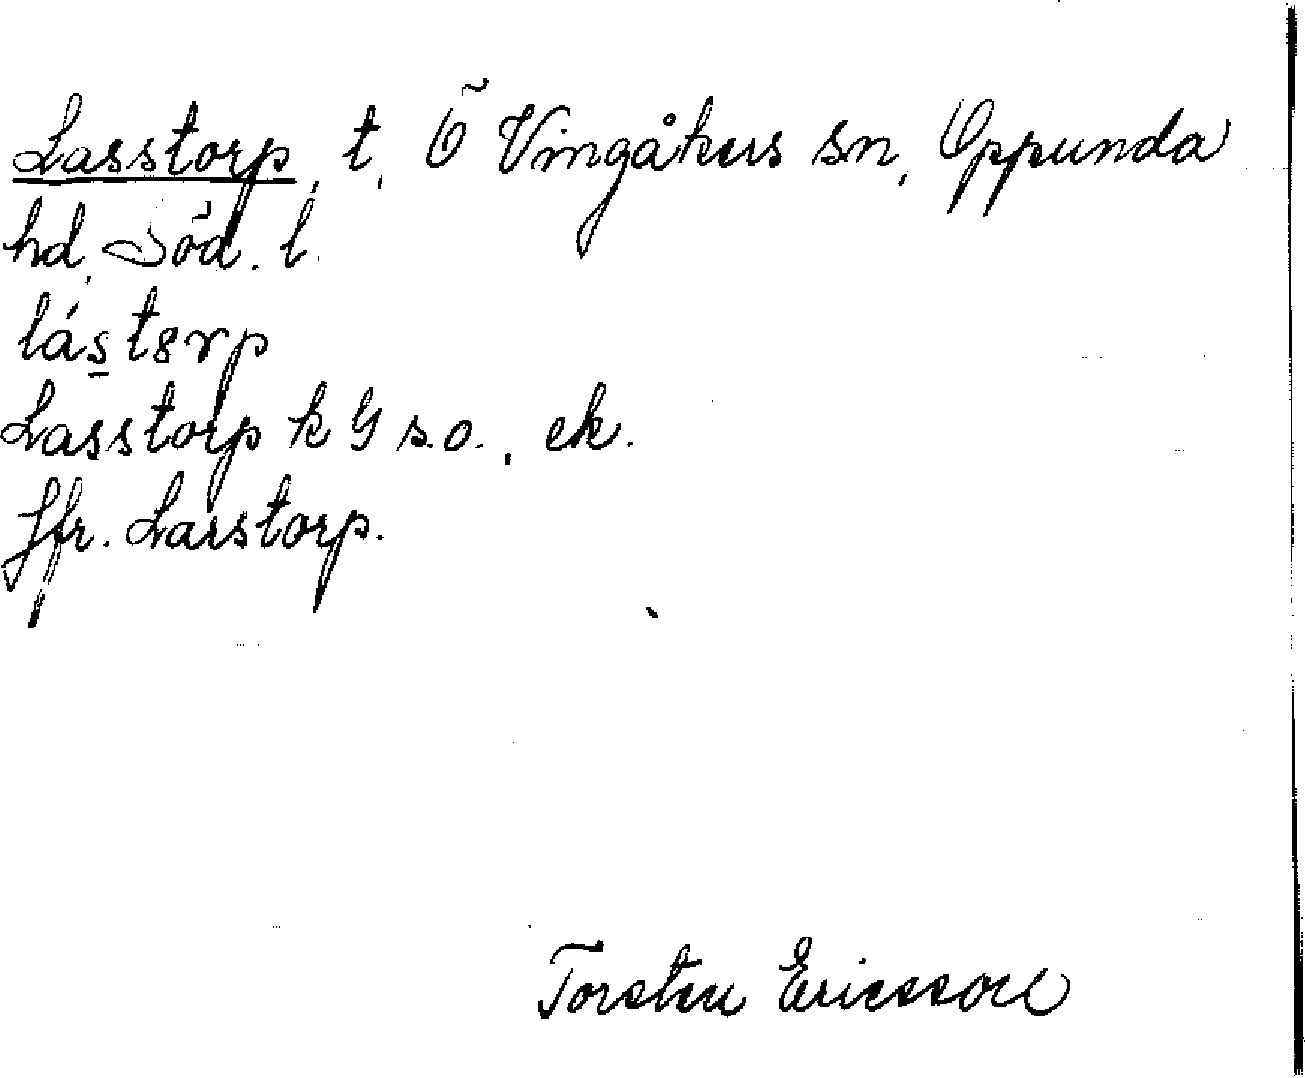 Lasstorp, t, Ö Vingåkers sn, Oppunda
hd, Söd. l.
lás̲t8rp
Lasstorp k G s.o., ek.
Jfr. Larstorp.
Torsten Ericsson